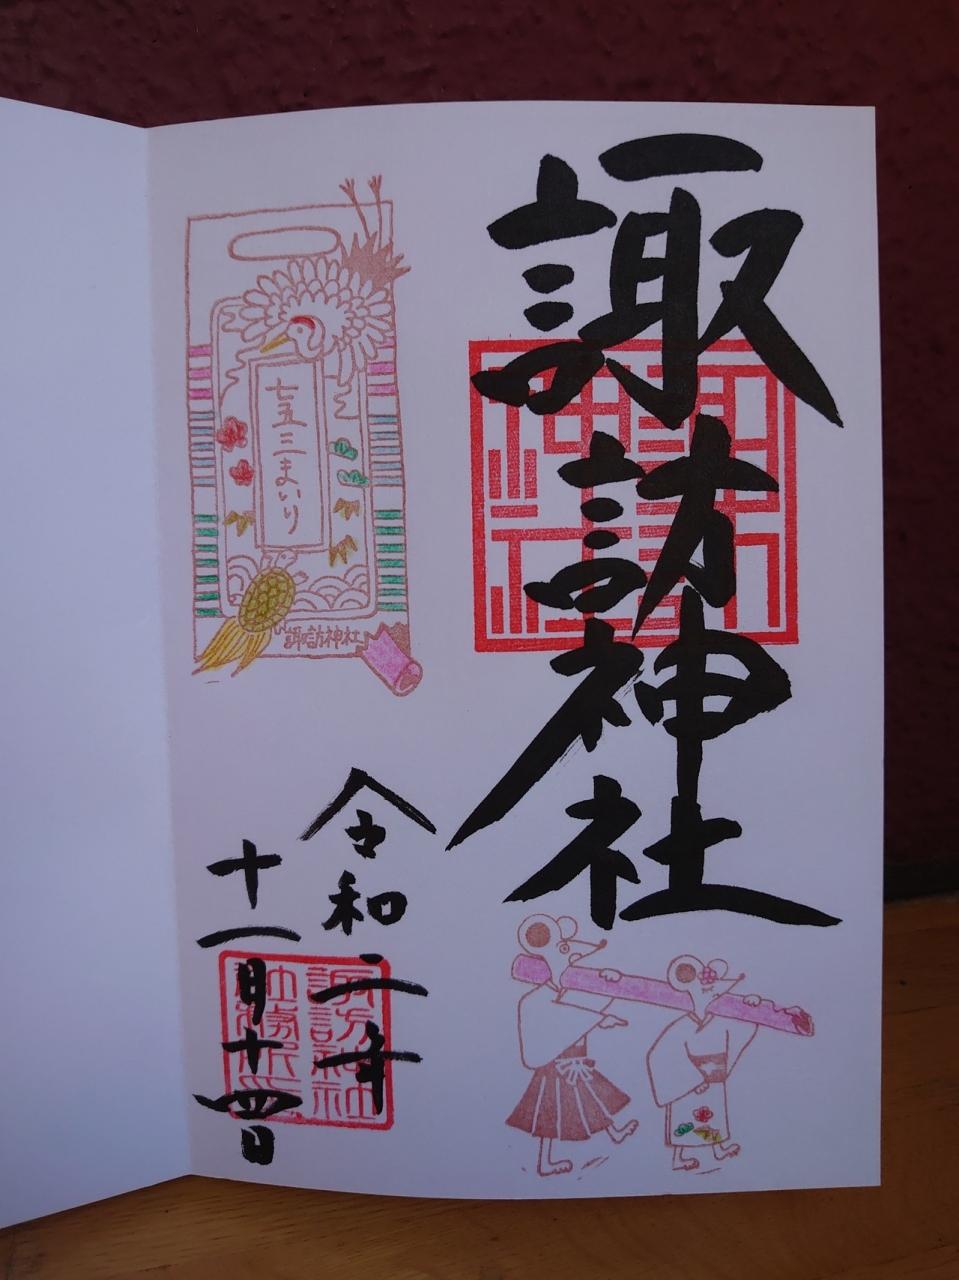 諏訪神社
七五三まいり
諏訪神社
令和二年
十一月十四日
諏訪神社